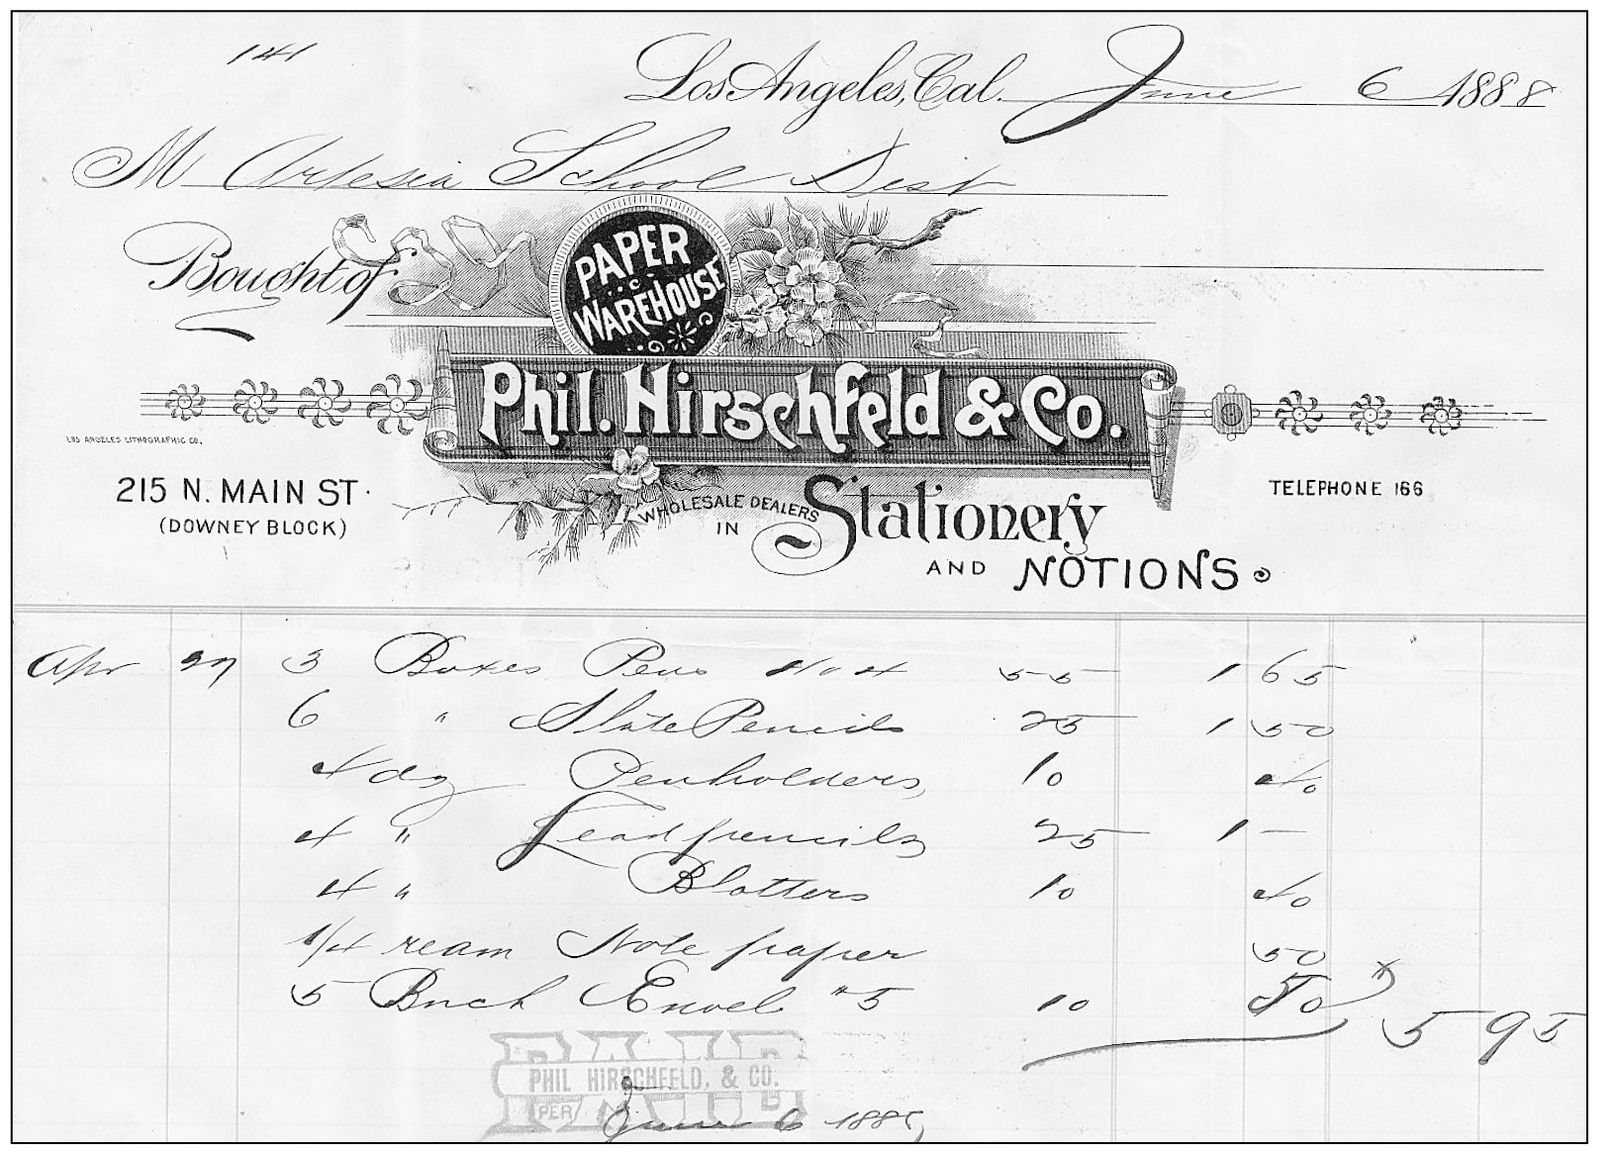 141
Los Angeles, Cal. June 6 1888
M Artesia School Dist
Bought of
PAPER
WAREHOUSE
Phil. Hirschfeld & Co.
LOS ANGELES LITHOGRAPHIC CO.
215 N. MAIN ST.
(DOWNEY BLOCK)
TELEPHONE 166
WHOLESALE DEALERS
IN Stationery
AND NOTIONS
Apr 27 3 Boxes Pens No 4 55 1 65
6 " Slate Pencils 25 1 50
4 dz Penholders 10 40
4 " Leadpencils 25 1 —
4 " Blotters 10 40
1/4 ream Note paper 50
5 Bnch Envel #5 10 50
5 95
PAID
PHIL HIRSCHFELD, & CO.
PER
June 6 188